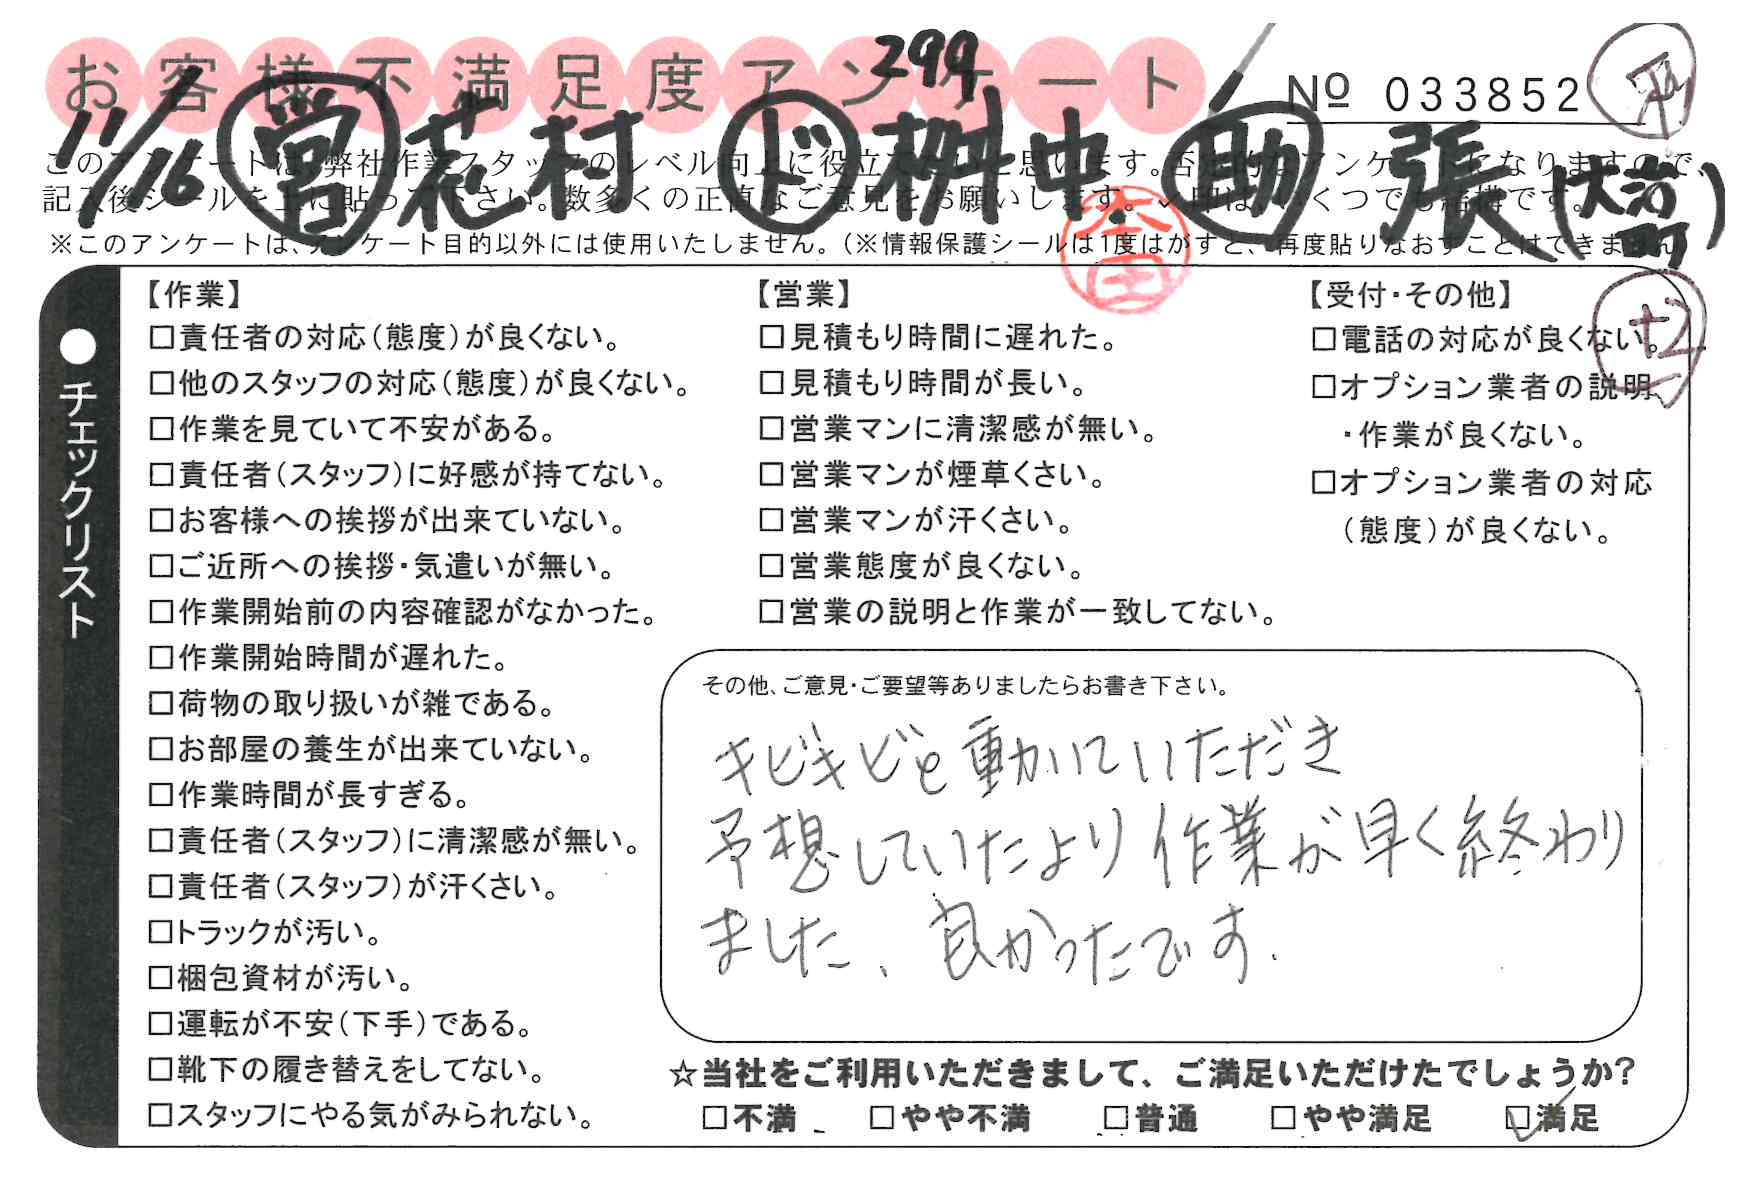 お客様不満足度アンケート
299
Nº 033852
11/16 営 花村 ド 桝中 助 張(大治町)
このアンケートは、弊社作業スタッフのレベル向上に役立てたいと思います。否定的なアンケートになりますので、
記入後シールを上に貼って下さい。数多くの正直なご意見をお願いします。✓印は、いくつでも結構です。
※このアンケートは、アンケート目的以外には使用いたしません。(※情報保護シールは1度はがすと、再度貼りなおすことはできません)
●チェックリスト
【作業】
□責任者の対応(態度)が良くない。
□他のスタッフの対応(態度)が良くない。
□作業を見ていて不安がある。
□責任者(スタッフ)に好感が持てない。
□お客様への挨拶が出来ていない。
□ご近所への挨拶・気遣いが無い。
□作業開始前の内容確認がなかった。
□作業開始時間が遅れた。
□荷物の取り扱いが雑である。
□お部屋の養生が出来ていない。
□作業時間が長すぎる。
□責任者(スタッフ)に清潔感が無い。
□責任者(スタッフ)が汗くさい。
□トラックが汚い。
□梱包資材が汚い。
□運転が不安(下手)である。
□靴下の履き替えをしてない。
□スタッフにやる気がみられない。
【営業】
□見積もり時間に遅れた。
□見積もり時間が長い。
□営業マンに清潔感が無い。
□営業マンが煙草くさい。
□営業マンが汗くさい。
□営業態度が良くない。
□営業の説明と作業が一致してない。
【受付・その他】
□電話の対応が良くない。
□オプション業者の説明
・作業が良くない。
□オプション業者の対応
(態度)が良くない。
その他、ご意見・ご要望等ありましたらお書き下さい。
キビキビと動いていただき
予想していたより作業が早く終わり
ました、良かったです.
☆当社をご利用いただきまして、ご満足いただけたでしょうか?
□不満 □やや不満 □普通 □やや満足 ☑満足